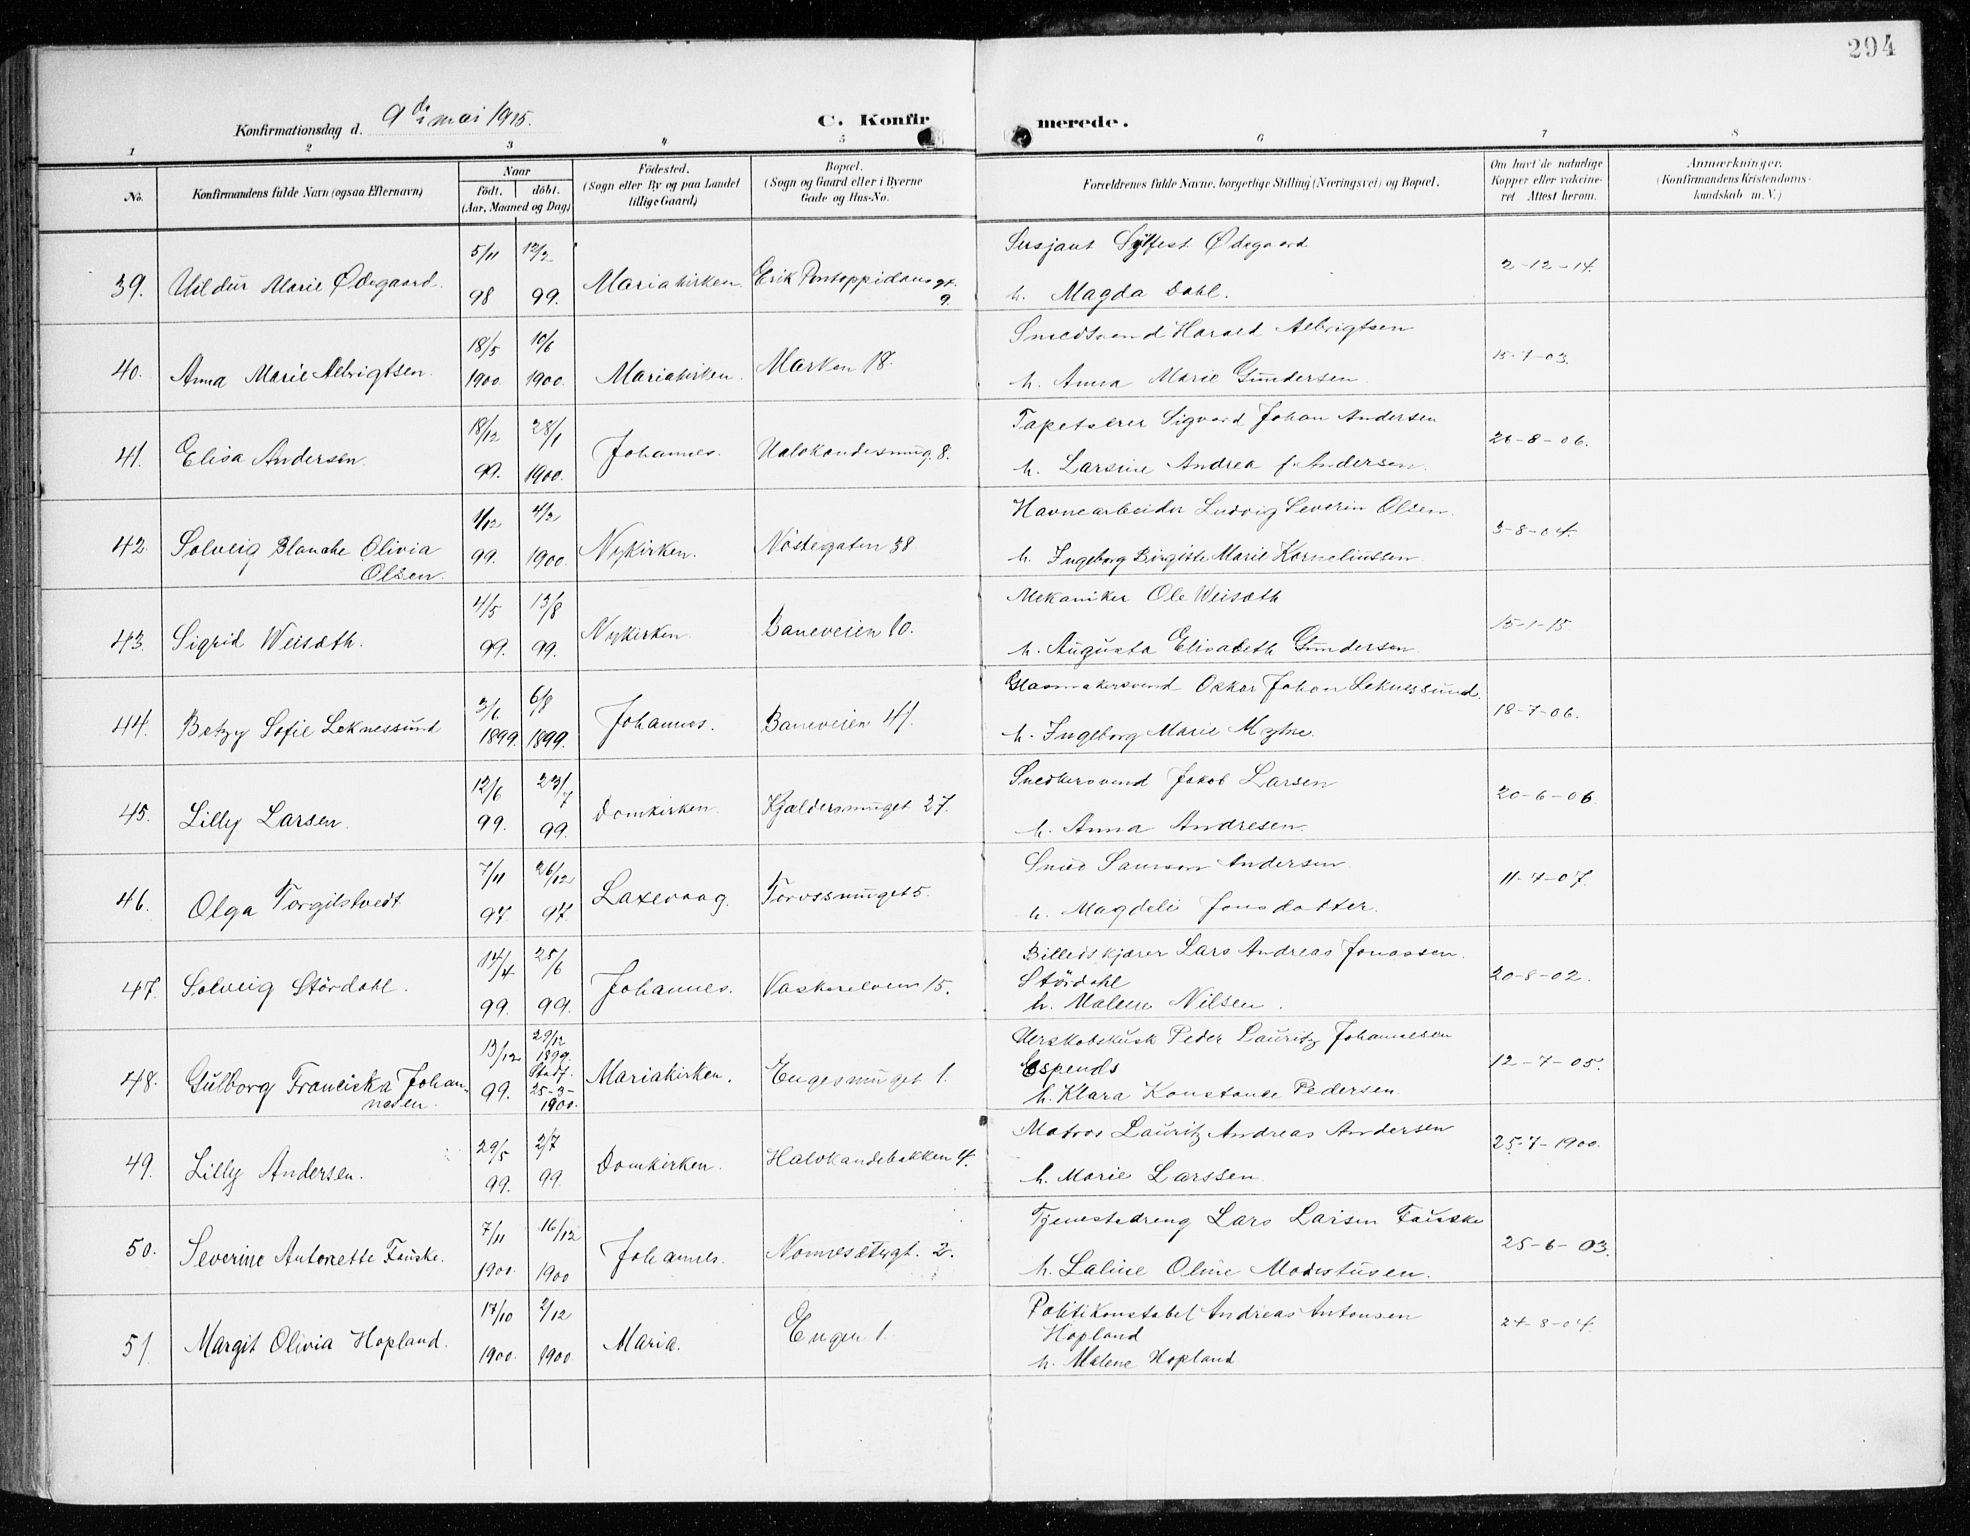 294
Konfirmationsdag d. 9de mai 1915.
C. Konfirmerede.
1 2 3 4 5 6 7 8
No.
Konfirmandens fulde Navn (ogsaa Efternavn)
Naar
født. døbt.
(Aar, Maaned og Dag)
Födested.
(Sogn eller By og paa Landet
tillige Gaard)
Bopæl.
(Sogn og Gaard eller i Byerne
Gade og Hus-No.
Forældrenes fulde Navne, borgerlige Stilling (Næringsvei) og Bopæl.
Om havt de naturlige
Kopper eller vakcine-
ret Attest herom.
Anmærkninger.
(Konfirmandens Kristendoms-
kundskab m. V.)
39. Hildur Marie Ødegaard. 5/11 98 12/2 99. Mariakirken. Erik Pontoppidans gt. 9. Sersjant Sylfest Ødegaard 2-12-14.
h. Magda Dahl.
40. Anna Marie Albrigtsen. 18/5 1900. 10/6 1900. Mariakirken. Marken 18. Smedsvend Harald Albrigtsen 15-7-03.
h. Anna Marie Gundersen.
41. Elisa Andersen. 18/12 99. 28/1 1900. Johannes. Halvkandesmug. 8. Tapetserer Sigvard Johan Andersen 20-8-06.
h. Larsine Andrea f. Andersen.
42. Solveig Blanche Olivia
Olsen. 1/12 99. 4/2 1900. Nykirken. Nøstegaten 38 Havnearbeider Ludvig Severin Olsen. 3-8-04.
h. Ingeborg Birgitte Marie Korneliussen.
43. Sigrid Weisæth. 4/5 99. 13/8 99. Nykirken. Baneveien 10. Mekaniker Ole Weisæth 15-1-15
h. Augusta Elisabeth Gundersen.
44. Betzy Sofie Leknessund 3/6 1899. 6/8 1899. Johannes. Baneveien 41. Glasmakersvend Oskar Johan Leknessund. 18-7-06.
h. Ingeborg Marie Myhre.
45. Lilly Larsen. 12/6 99. 23/7 99. Domkirken. Kjeldersmuget 27. Snedkersvend Jakob Larsen 20-6-06
h. Anna Andresen.
46. Olga Torgilstvedt 7/11 97 26/12 97 Laxevaag. Forvssmuget 5. Smed Samson Andersen. 11-7-07.
h. Magdeli Jonsdatter.
47. Solveig Stördahl. 14/4 99. 25/6 99. Johannes. Vaskerelven 15. Billedskjærer Lars Andreas Jonassen. 20-8-02.
Stördahl
h. Malene Nilsen.
48. Gulborg Franciska Johan-
nesen. 13/12 99. 29/12 1899. Stadf. 25-3-1900. Mariakirken. Engesmuget 1. Herskabskusk Peder Lauritz Johannesen 12-7-05.
Espends
h. Klara Konstanse Pedersen.
49. Lilly Andersen. 29/5 99. 2/7 99. Domkirken. Halvkandebakken 4. Matros Lauritz Andreas Andersen 25-7-1900.
h. Marie Larssen.
50. Severine Antonette Fauske. 7/11 1900. 16/12 1900 Johannes. Nonnesætergt. 2. Tjenestedreng Lars Larsen Fauske 25-6-03.
h. Laline Oline Modestusen.
51. Margit Olivia Hopland. 17/10 1900. 2/12 1900 Maria. Engen 1. Politikonstabel Andreas Antonsen 24-8-04.
Hopland
h. Malene Hopland